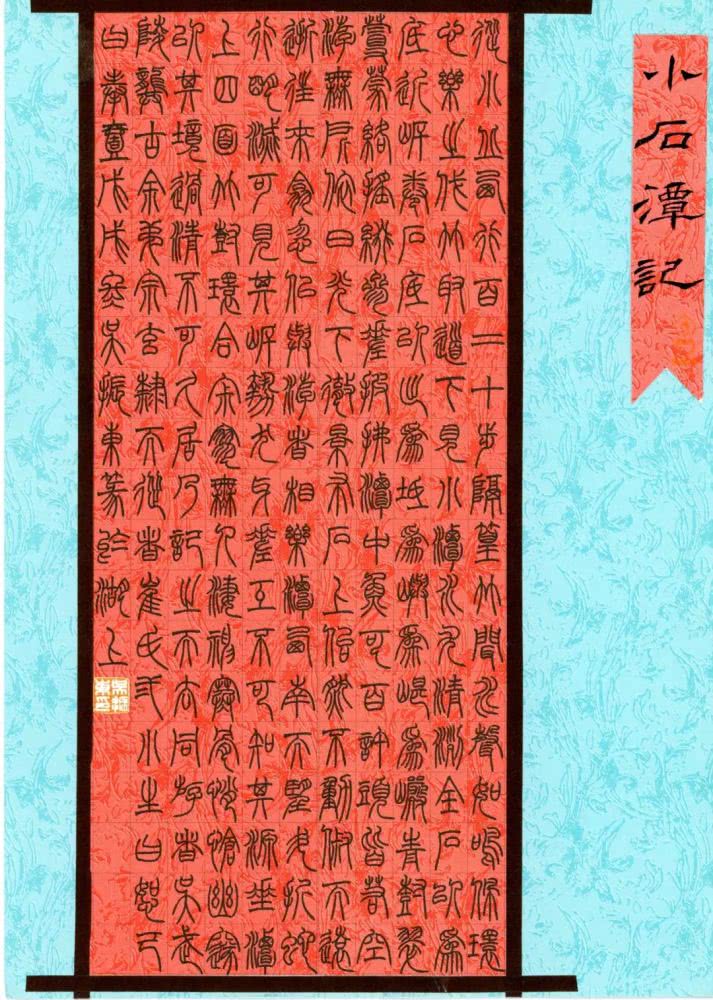 小石潭記
從小丘西行百二十步隔篁竹聞水聲如鳴佩環
心樂之伐竹取道下見小潭水尤清洌全石以為
底近岸卷石底以出為坻為嶼為嵁為巖青樹翠
蔓蒙絡搖綴參差披拂潭中魚可百許頭皆若空
游無所依日光下徹景布石上佁然不動俶而遠
逝往來翕忽似與游者相樂潭西南而望斗折蛇
行明滅可見其岸勢犬牙差互不可知其源坐潭
上四面竹樹環合寂寥無人淒神寒骨悄愴幽邃
以其境過清不可久居乃記之而去同游者吳武
陵龔古余弟宗玄隸而從者崔氏二小生曰恕己
曰奉壹戊戌冬吳振東篆於湖上
吳振東印